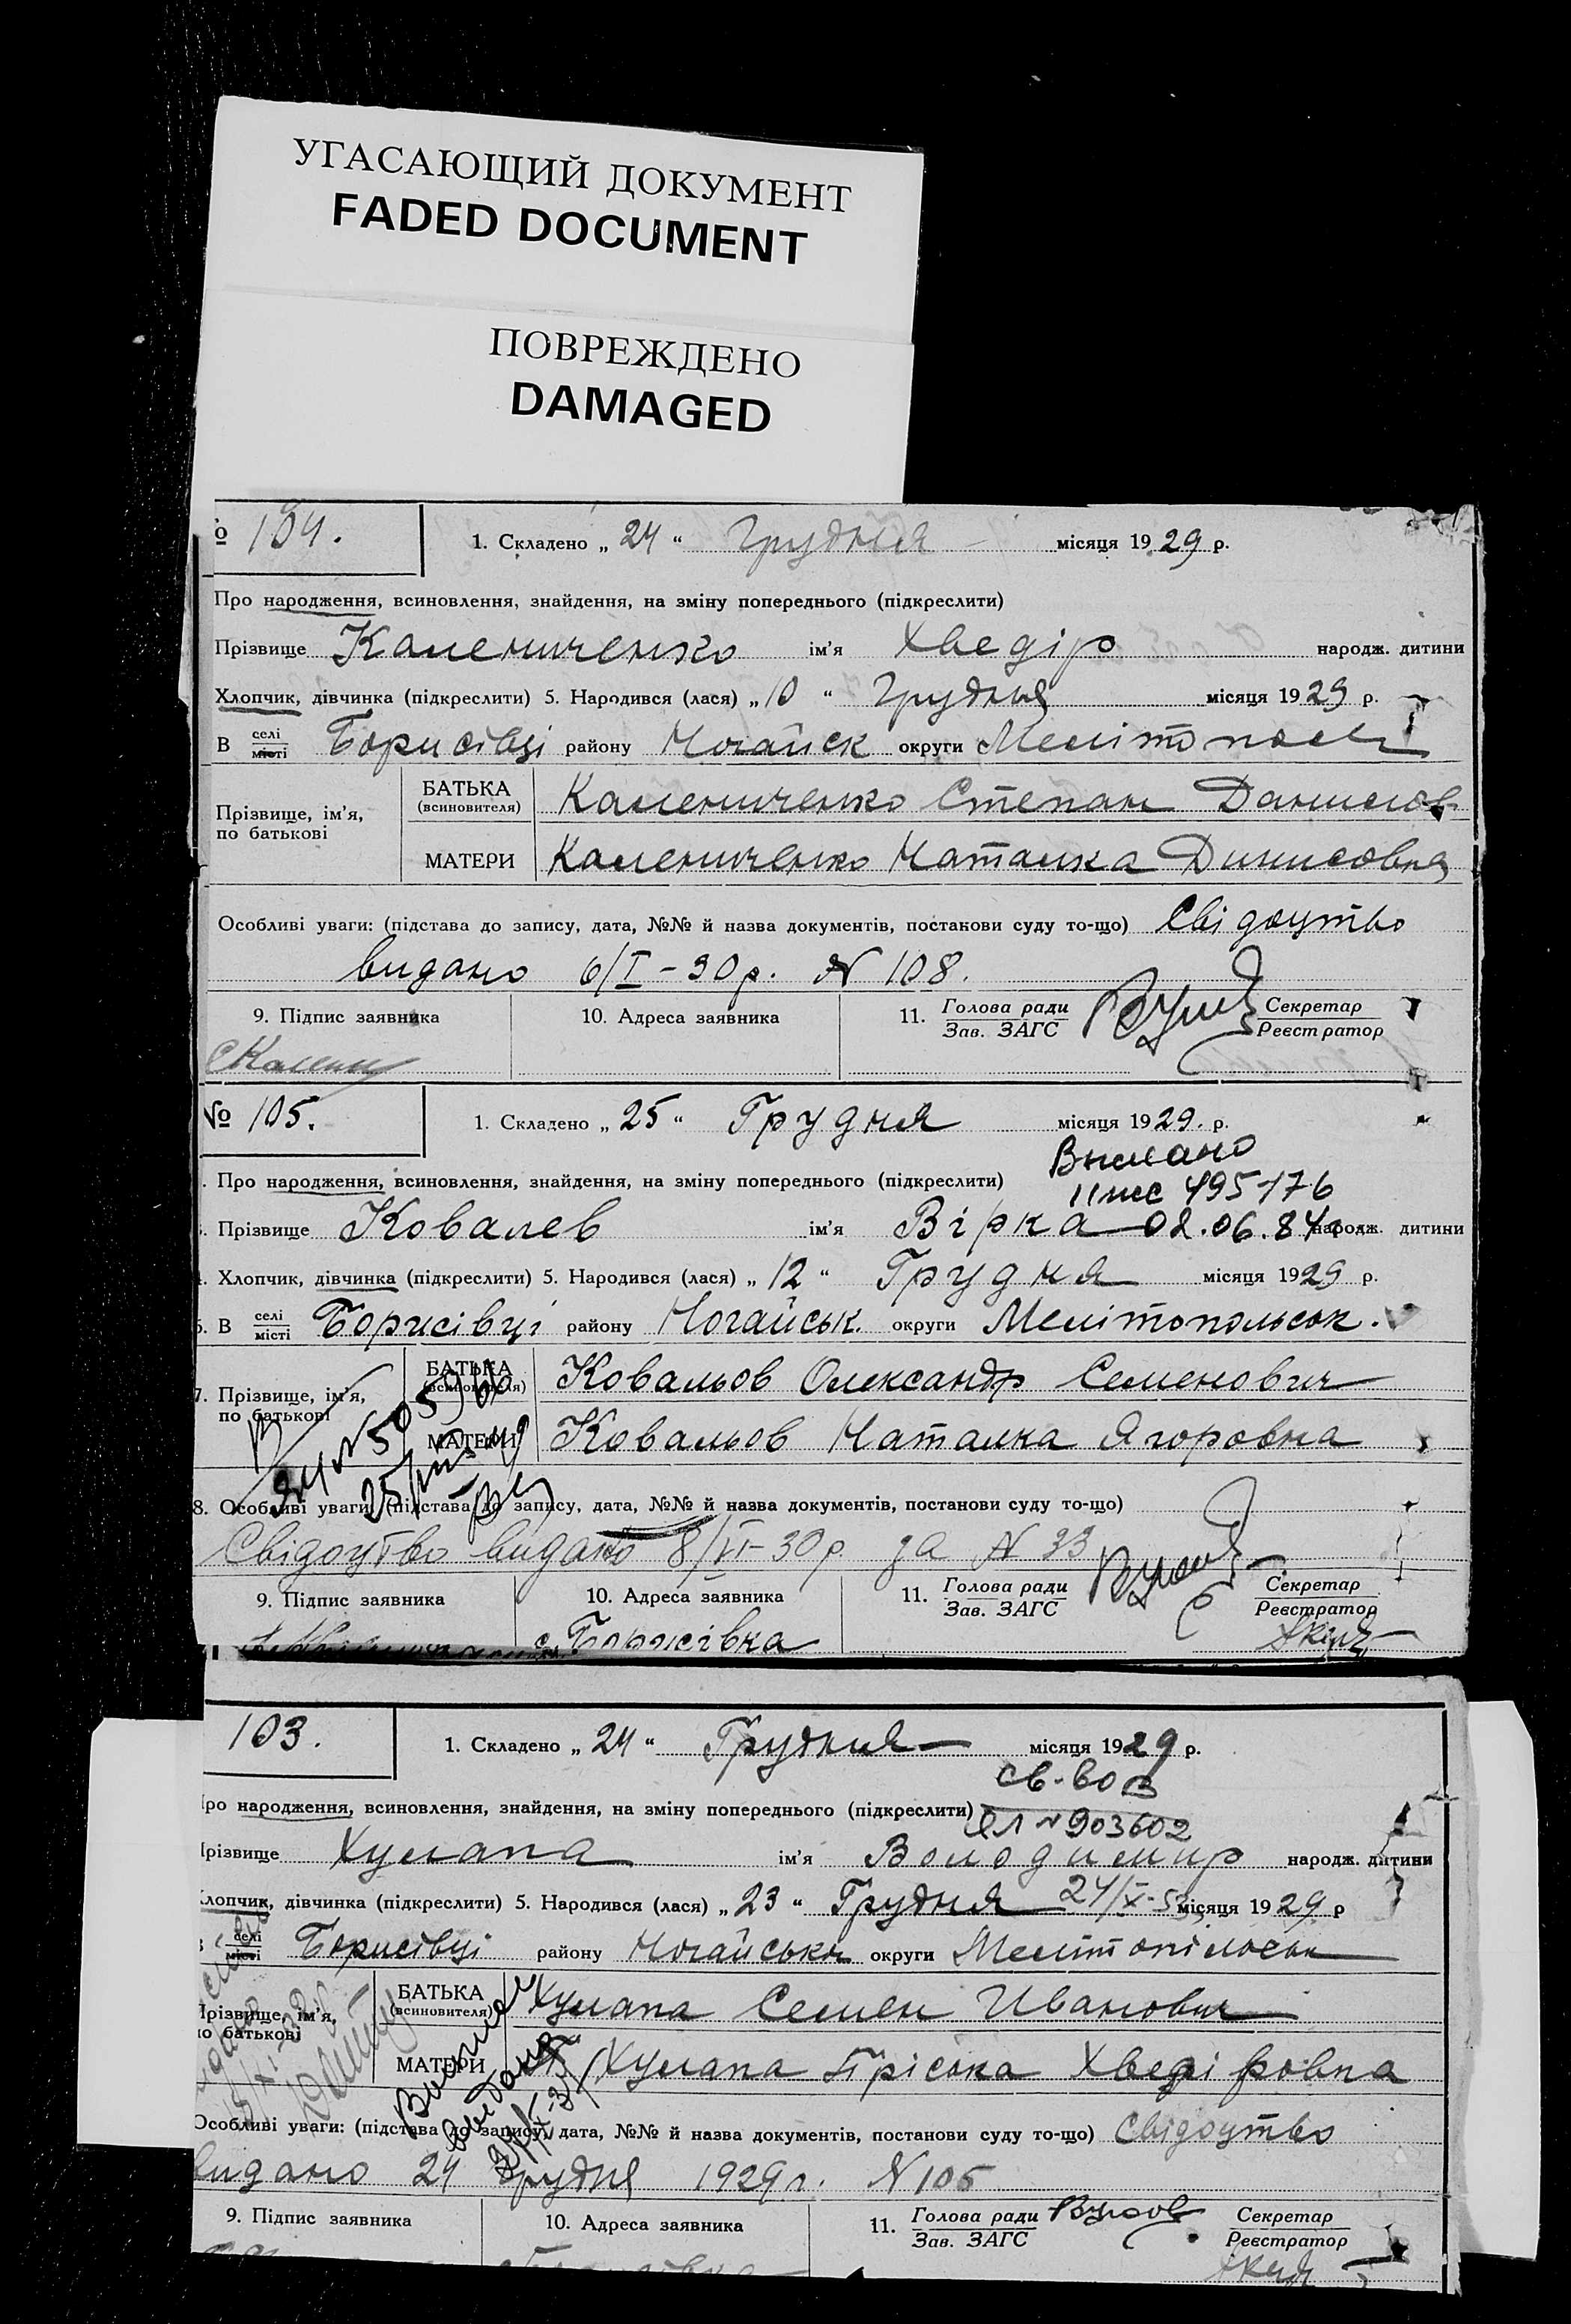 УГАСАЮЩИЙ ДОКУМЕНТ
FADED DOCUMENT
ПОВРЕЖДЕНО
DAMAGED
№ 104. 1. Складено „ 24 “ Грудня місяця 1929 р.
Про народження, всиновлення, знайдення, на зміну попереднього (підкреслити)
Прізвище Калениченко ім’я Хведір народж. дитини
Хлопчик, дівчинка (підкреслити) 5. Народився (лася) „ 10 “ Грудня місяця 1929 р.
В селі місті Борисівці району Ногайск округи Мелітопол
Прізвище, ім’я, по батькові
БАТЬКА (всиновителя) Калениченко Степан Данилов
МАТЕРИ Калениченко Наталка Динисовна
Особливі уваги: (підстава до запису, дата, №№ й назва документів, постанови суду то-що) Свідоцтво
видано 6/I-30р. N 108.
9. Підпис заявника 10. Адреса заявника 11. Голова ради Зав. ЗАГС Секретар Реєстратор
№ 105. 1. Складено „ 25 “ Грудня місяця 1929. р.
Выслано
Про народження, всиновлення, знайдення, на зміну попереднього (підкреслити) 495176
Прізвище Ковалев ім’я Вірка 02.06.84 народж. дитини
Хлопчик, дівчинка (підкреслити) 5. Народився (лася) „ 12 “ Грудня місяця 1929 р.
6. В селі місті Борисівці району Ногайськ. округи Мелітопольськ.
7. Прізвище, ім’я, по батькові
БАТЬКА (всиновителя) Ковальов Олександр Семенович
МАТЕРИ Ковальов Наталка Ягоровна
8. Особливі уваги: (підстава до запису, дата, №№ й назва документів, постанови суду то-що)
Свідоцтво видано 8/VI-30р. за N 33
9. Підпис заявника 10. Адреса заявника 11. Голова ради Зав. ЗАГС Секретар Реєстратор
с. Борисівка
103. 1. Складено „ 24 “ Грудня місяця 1929 р.
св-во
Про народження, всиновлення, знайдення, на зміну попереднього (підкреслити) N 903602
Прізвище Хулапа ім’я Володимир народж. дитини
Хлопчик, дівчинка (підкреслити) 5. Народився (лася) „ 23 “ Грудня 24/X-53 місяця 1929 р
В селі місті Борисівці району Ногайськ округи Мелітопільськ
Прізвище, ім’я, по батькові
БАТЬКА (всиновителя) Хулапа Семен Иванович
МАТЕРИ Хулапа Пріська Хведіровна
Особливі уваги: (підстава до запису, дата, №№ й назва документів, постанови суду то-що) Свідоцтво
видано 24 Грудня 1929 р. N 105
9. Підпис заявника 10. Адреса заявника 11. Голова ради Зав. ЗАГС Секретар Реєстратор